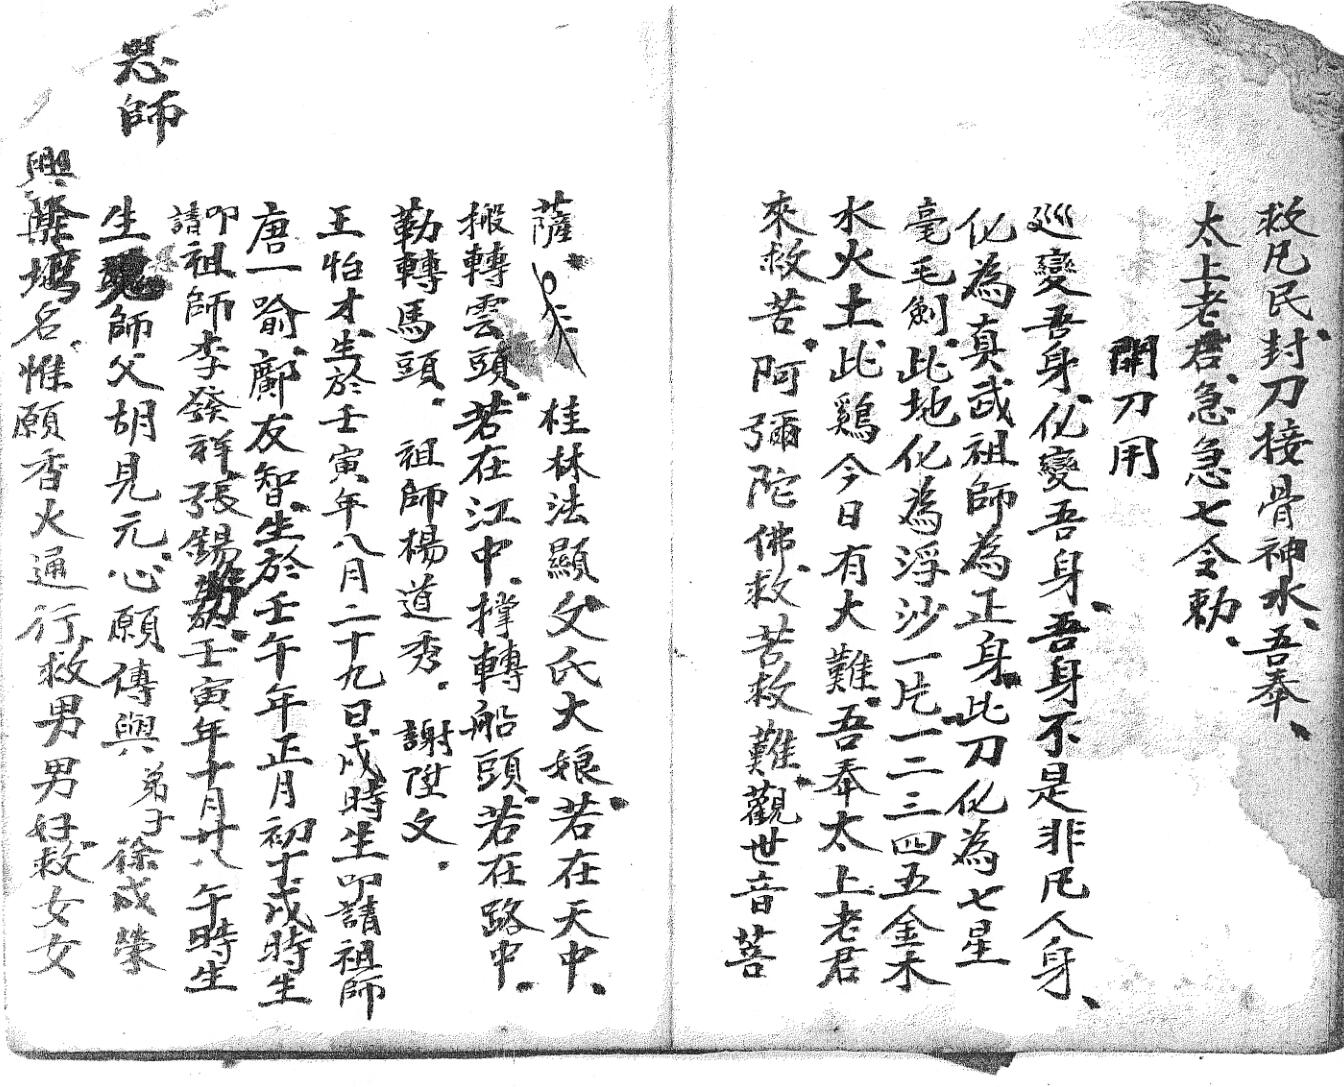 救凡民、封刀接骨神水、吾奉、
太上老君、急急七令勅、
開刀用
巡變吾身、化變吾身、吾身不是非凡人身、
化為真武祖師為正身、此刀化為七星
毫毛劍、此地化為浮沙一片、一二三四五金木
水火土、此鷄今日有大難、吾奉太上老君
來救苦、阿彌陀佛、救苦救難、觀世音菩
薩、桂林法顯父氏大娘、若在天中、
搬轉雲頭、若在江中、撑轉船頭、若在路中、
勒轉馬頭、祖師楊道秀、謝陞文、
王怡才、生於壬寅年八月二十九日戌時生叩請祖師
唐一喻、鄺友智、生於壬午年正月初十戌時生
叩請祖師李發祥、張錫於壬寅年十月廿八午時生
恩師
生師父胡見元、心願傳與弟子徐成榮
興隆壇名、惟願香火通行、救男男好、救女女